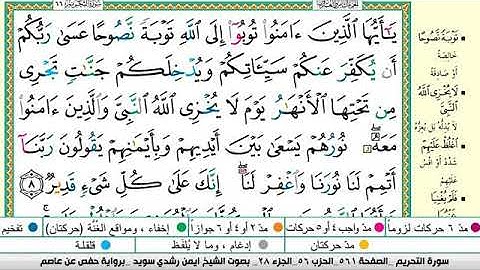 سورة التحريم ٦٦
يَٰٓأَيُّهَا ٱلَّذِينَ ءَامَنُوا۟ تُوبُوٓا۟ إِلَى ٱللَّهِ تَوْبَةً نَّصُوحًا عَسَىٰ رَبُّكُمْ
أَن يُكَفِّرَ عَنكُمْ سَيِّـَٔاتِكُمْ وَيُدْخِلَكُمْ جَنَّٰتٍ تَجْرِى
مِن تَحْتِهَا ٱلْأَنْهَٰرُ يَوْمَ لَا يُخْزِى ٱللَّهُ ٱلنَّبِىَّ وَٱلَّذِينَ ءَامَنُوا۟
مَعَهُۥ نُورُهُمْ يَسْعَىٰ بَيْنَ أَيْدِيهِمْ وَبِأَيْمَٰنِهِمْ يَقُولُونَ رَبَّنَآ
أَتْمِمْ لَنَا نُورَنَا وَٱغْفِرْ لَنَآ إِنَّكَ عَلَىٰ كُلِّ شَىْءٍ قَدِيرٌ ٨
تَوْبَةً نَّصُوحًا
خالصة
أو صادقة
لَا يُخْزِى ٱللَّهُ
ٱلنَّبِىَّ
لا يذله بل يعزه
ٱغْلُظْ عَلَيْهِمْ
شدد أو اقس
عليهم
فَلَمْ يُغْنِيَا
مد ٦ حركات لزوماً
مد واجب ٤ أو ٥ حركات
مد ٢ أو ٤ أو ٦ جوازاً
إخفاء، ومواقع الغُنَّة (حركتان)
تفخيم
مد حركتان
إدغام، وما لا يُلفَظ
قلقلة
سورة التحريم _الصفحة ٥٦١_ الحزب ٥٦_ الجزء ٢٨_ بصوت الشيخ ايمن رشدي سويد _برواية حفص عن عاصم